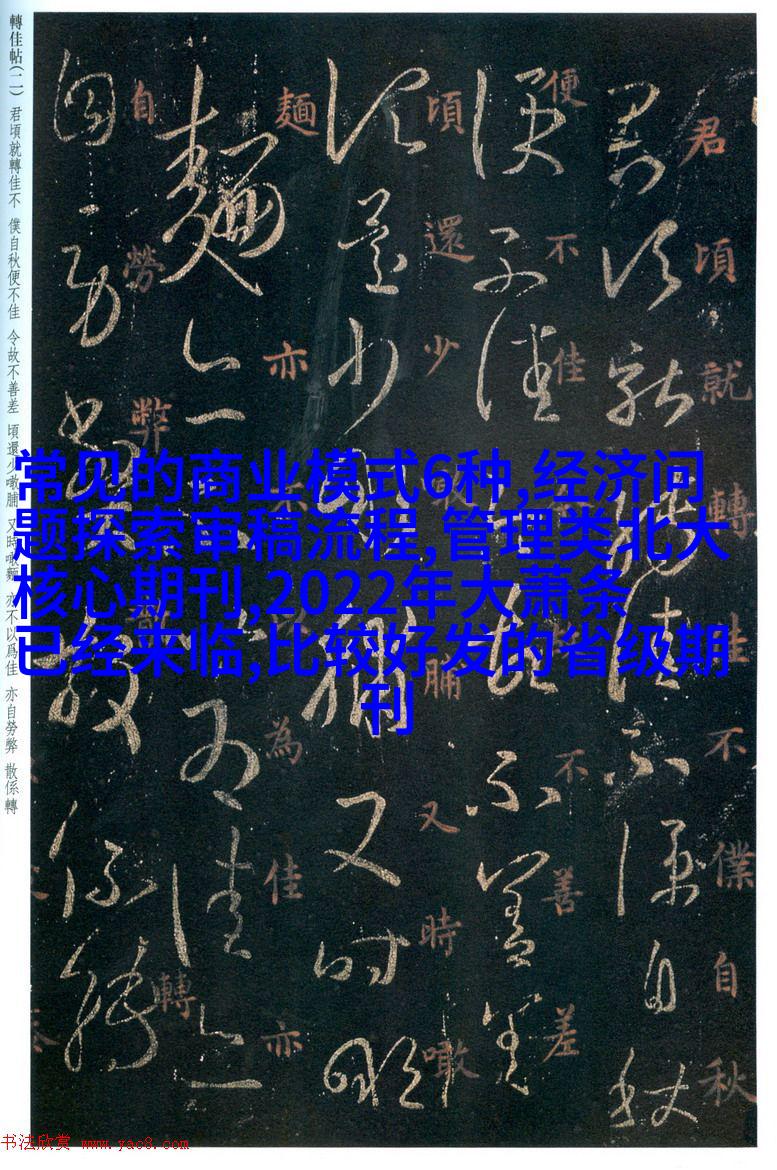 轉佳帖(二) 君頃就轉佳不 僕自秋便不佳 令故不善差 頃還少噉脯 又時噉麵 亦不以爲佳 亦自勞弊 散係轉
君頃就轉佳不僕自秋
便不佳
不善差
頃還少噉脯又時噉
麵亦不以為佳亦
自勞弊散
轉
常见的商业模式6种,经济问
题探索审稿流程,管理类北大
核心期刊,2022年大萧条
已经来临,比较好发的省级期
刊
书法欣赏 www.yac8.com